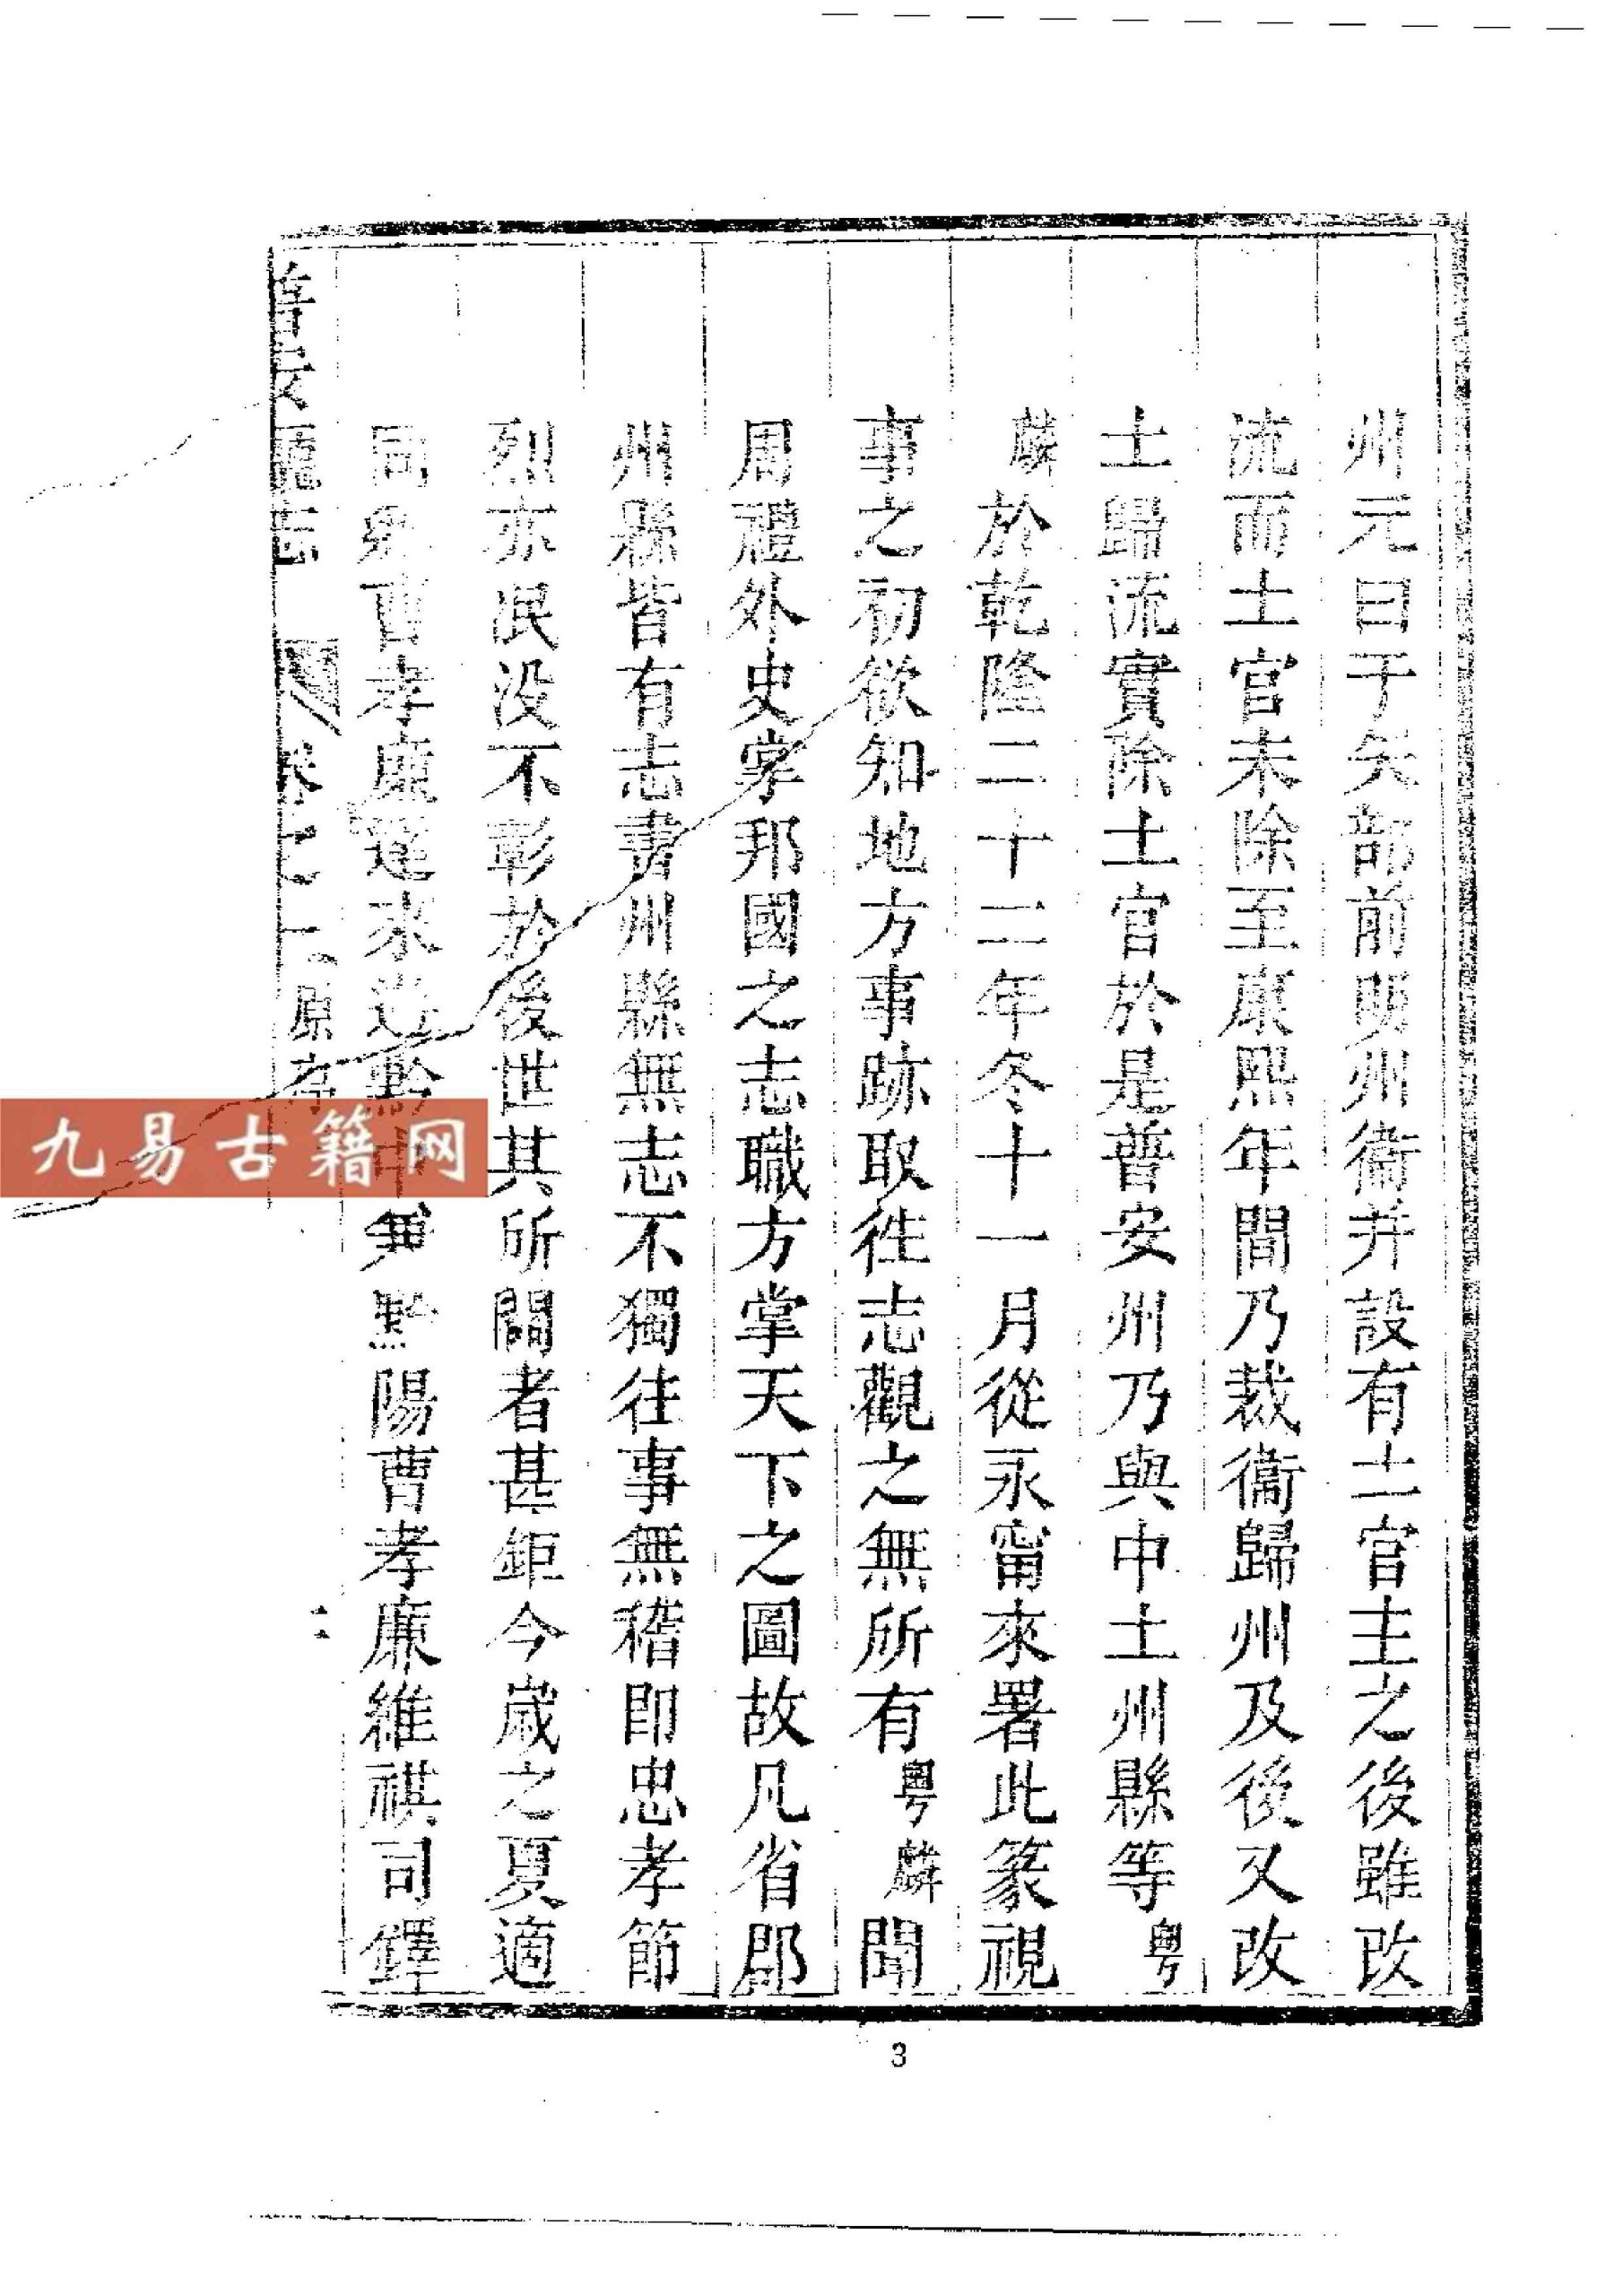 州元曰于矢部前明州衞并設有土官主之後雖改
流而土官未除至康熙年間乃裁衞歸州及後又改
土歸流實除土官於是普安州乃與中土州縣等粤
麟於乾隆二十二年冬十一月從永甯來署此篆視
事之初欲知地方事跡取徃志觀之無所有粤麟聞
周禮外史掌邦國之志職方掌天下之圖故凡省郡
州縣皆有志書州縣無志不獨往事無稽即忠孝節
烈亦泯没不彰於後世其所關者甚鉅今歲之夏適
同 曹孝廉 來 黔中 黔陽曹孝廉維祺司鐸
普安廳志 卷之一 原存 二
九易古籍网
3